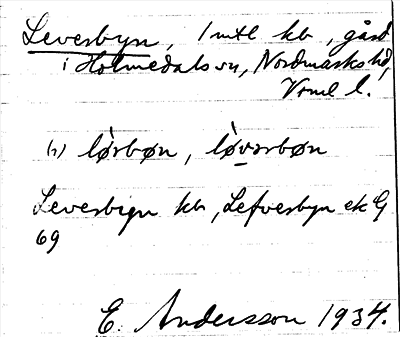 Leversbyn, 1 mtl kb, gård
i Holmedals sn, Nordmarks hd,
Vrml l.
lø̀rsbøn, lø̀vərsbøn
Leversbign kb, Lefversbyn ek G
69
E. Andersson 1934.